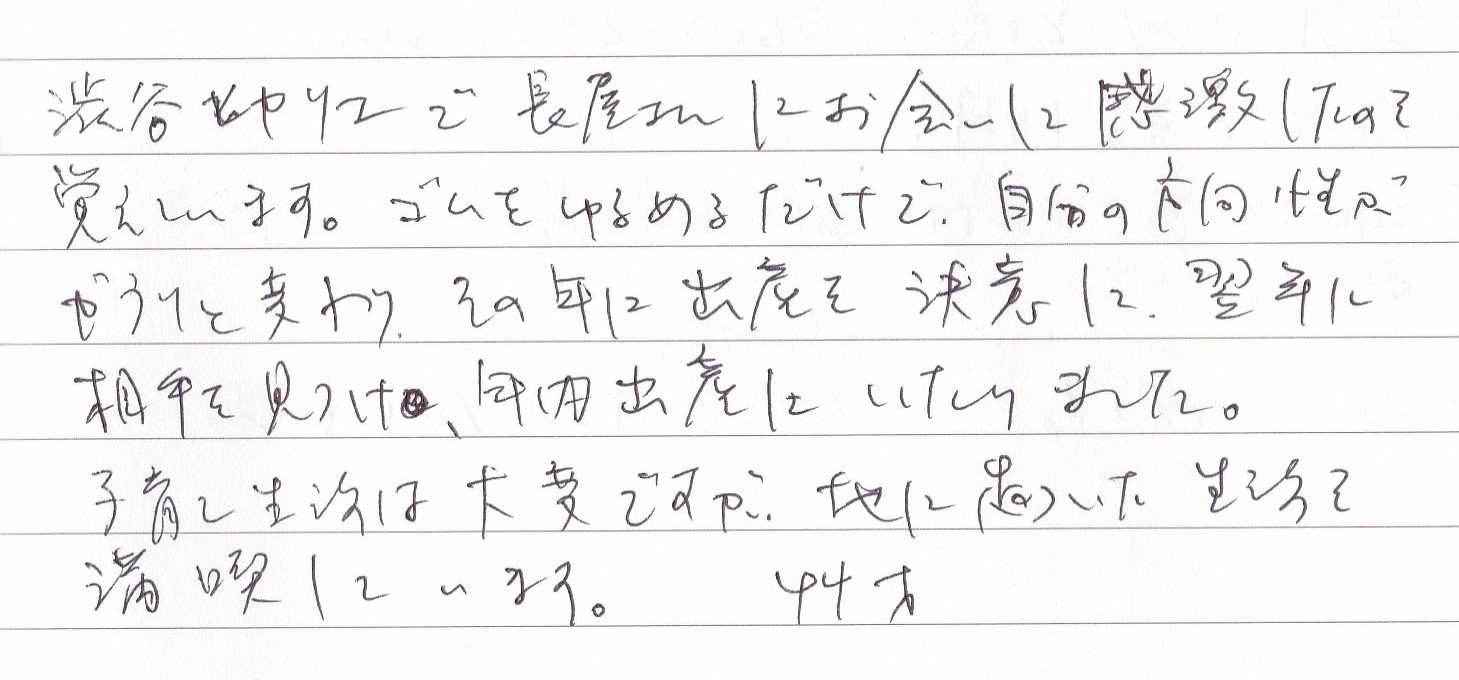 渋谷セヤリエで長屋さんにお会いして感激したのを
覚えています。ゴムをゆるめるだけで、自分の方向性が
がらりと変わり、その年に出産を決意して、翌年に
相手を見つけ、年内出産にいたりました。
子育て生活は大変ですが、地に足ついた生活を
満喫しています。 44才